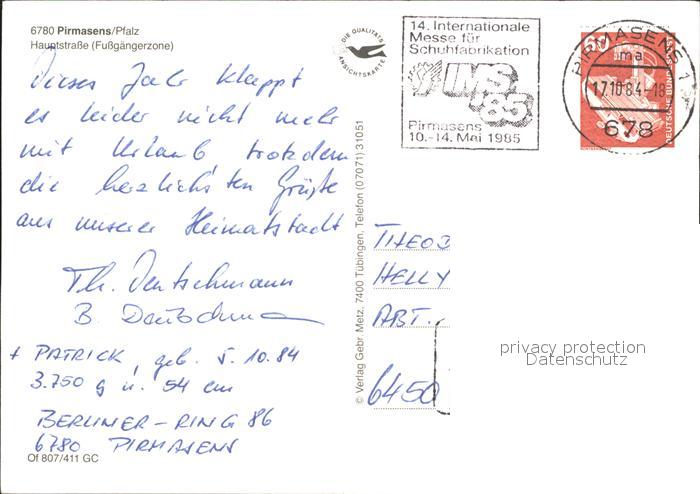 6780 Pirmasens/Pfalz
Hauptstraße (Fußgängerzone)
DIE QUALITÄTS
ANSICHTSKARTE
14. Internationale
Messe für
Schuhfabrikation
IMS
'85
Pirmasens
10.-14. Mai 1985
PIRMASENS 1
ma
17.10.84-18
678
60
DEUTSCHE BUNDES
Dieses Jahr klappt
es leider nicht mehr
mit Urlaub, trotzdem
die herzlichsten Grüße
aus unserer Heimatstadt
Th. Deutschmann
B. Deutschma
+ PATRICK, geb. 5.10.84
3.750 g u. 54 cm
BERLINER-RING 86
6780 PIRMASENS
Of 807/411 GC
© Verlag Gebr. Metz, 7400 Tübingen, Telefon (07071) 31051
THEOD
HELLY
ABT.
6450
privacy protection
Datenschutz